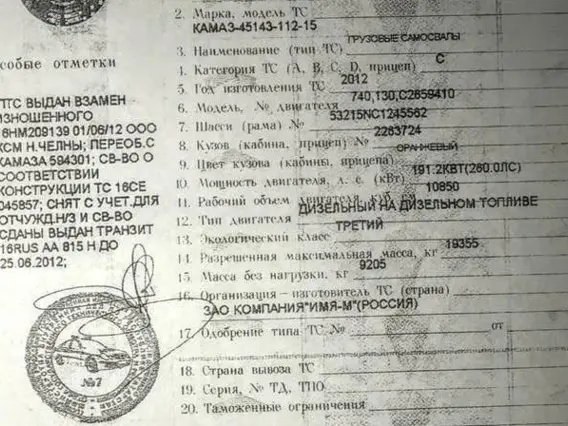 2. Марка, модель ТС
КАМАЗ-45143-112-15
3. Наименование (тип ТС) ГРУЗОВЫЕ САМОСВАЛЫ
4. Категория ТС (А, В, С, D, прицеп) С
5. Год изготовления ТС 2012
6. Модель, № двигателя 740,130,С2659410
7. Шасси (рама) № 53215NC1245562
8. Кузов (кабина, прицеп) № 2263724
9. Цвет кузова (кабины, прицепа) ОРАНЖЕВЫЙ
10. Мощность двигателя, л. с. (кВт) 191.2КВТ(260.0ЛС)
11. Рабочий объем двигателя 10850
12. Тип двигателя ДИЗЕЛЬНЫЙ НА ДИЗЕЛЬНОМ ТОПЛИВЕ
13. Экологический класс ТРЕТИЙ
14. Разрешенная максимальная масса, кг 19355
15. Масса без нагрузки, кг 9205
16. Организация-изготовитель ТС (страна)
ЗАО КОМПАНИЯ"ИМЯ-М"(РОССИЯ)
17. Одобрение типа ТС № от
18. Страна вывоза ТС
19. Серия, № ТД, ТПО
20. Таможенные ограничения
особые отметки
ПТС ВЫДАН ВЗАМЕН
ИЗНОШЕННОГО
16НМ209139 01/06/12 ООО
КСМ Н.ЧЕЛНЫ; ПЕРЕОБ.С
КАМАЗА 594301; СВ-ВО О
СООТВЕТСТВИИ
КОНСТРУКЦИИ ТС 16СЕ
045857; СНЯТ С УЧЕТ.ДЛЯ
ОТЧУЖД.Н/З И СВ-ВО
СДАНЫ ВЫДАН ТРАНЗИТ
16RUS АА 815 Н ДО
25.06.2012;
№7